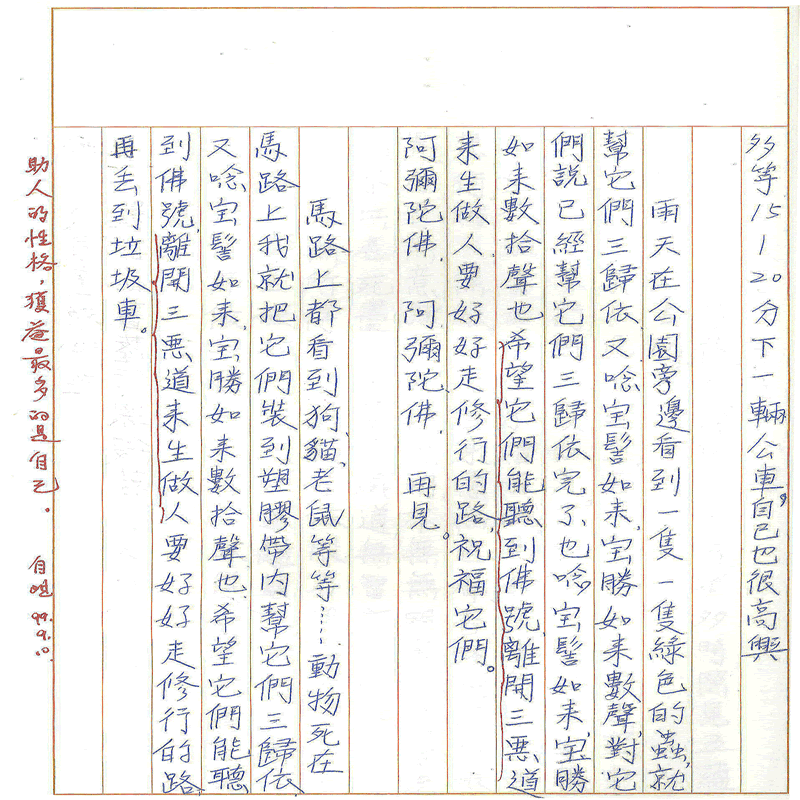 多等15-20分下一輛公車,自己也很高興
雨天在公園旁邊看到一隻一隻綠色的蟲,就
幫它們三歸依又唸宝髻如来,宝勝如来數聲,對它
們說已經幫它們三歸依完了,也唸宝髻如来,宝勝
如来數拾聲也希望它們能聽到佛號,離開三悪道
来生做人,要好好走修行的路,祝福它們。
阿彌陀佛. 阿彌陀佛. 再見。
馬路上都看到狗,貓,老鼠等等……動物死在
馬路上我就把它們裝到塑膠帶内幫它們三歸依
又唸宝髻如来,宝勝如来數拾聲也希望它們能聽
到佛號,離開三悪道来生做人要好好走修行的路
再丢到垃圾車。
助人的性格,獲益最多的是自己。 自 99.9.10.